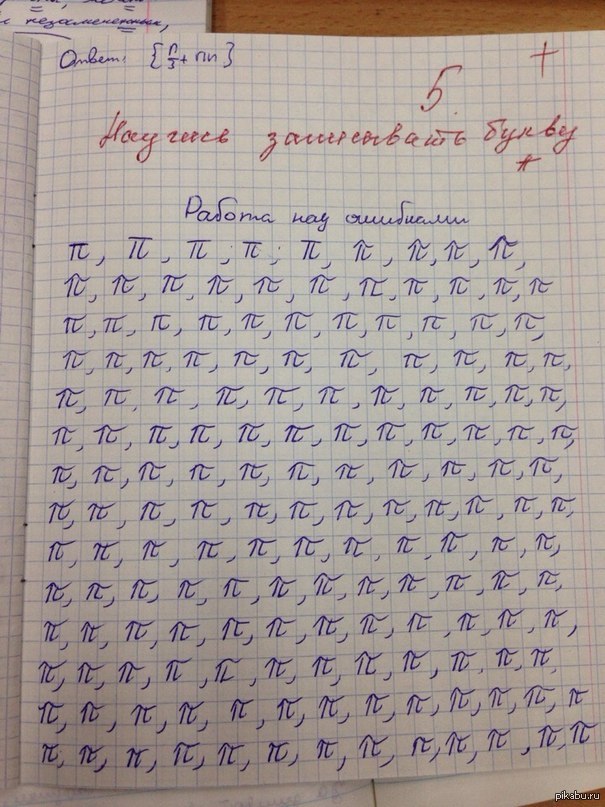 незамененных,
Ответ: {п/3 + пn}
5 +
Научись записывать букву
π
Работа над ошибками
π, π, π, π, π, π, π, π, π,
π, π, π, π, π, π, π, π, π, π, π
π, π, π, π, π, π, π, π, π, π, π,
π, π, π, π, π, π, π, π, π, π, π,
π, π, π, π, π, π, π, π, π, π, π,
π, π, π, π, π, π, π, π, π, π, π, π,
π, π, π, π, π, π, π, π, π, π, π,
π, π, π, π, π, π, π, π, π, π, π, π,
π, π, π, π, π, π, π, π, π, π, π,
π, π, π, π, π, π, π, π, π, π, π, π,
π, π, π, π, π, π, π, π, π, π, π, π,
π, π, π, π, π, π, π, π, π, π, π, π,
π, π, π, π, π, π, π, π, π, π, π, π, π
π, π, π, π, π, π, π, π, π, π, π, π, π
pikabu.ru